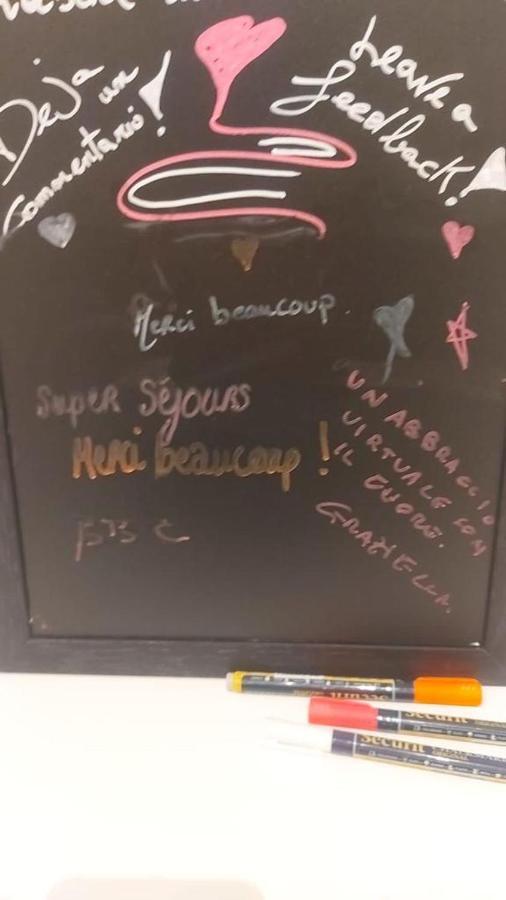 Deja un
commentario!
Leave a
feedback!
Merci beaucoup.
Super Séjours
Merci beaucoup!
UN ABBRACCIO
VIRTUALE CON
IL CUORE.
GRAZIELLA.
Securit
Securit
Securit